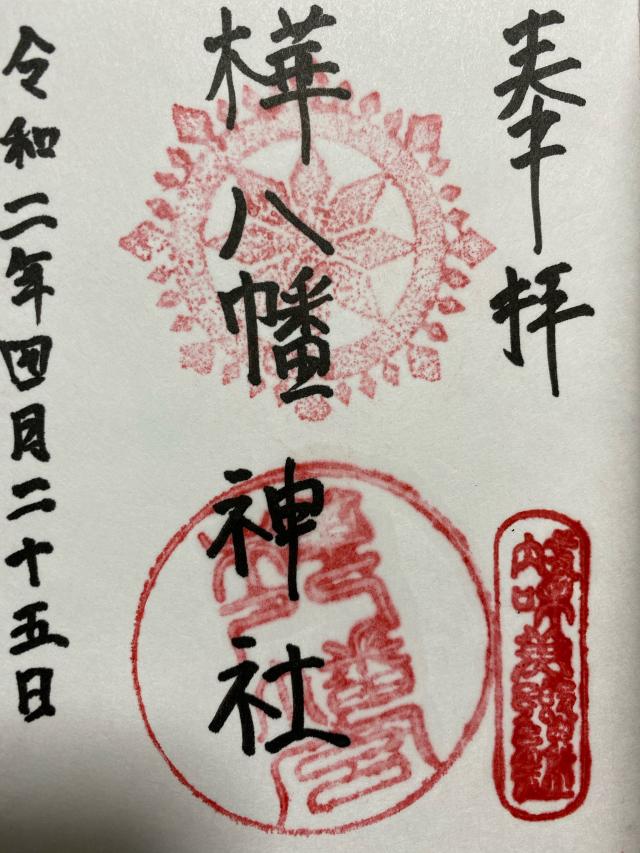 奉拝
樺八幡神社
令和二年四月二十五日